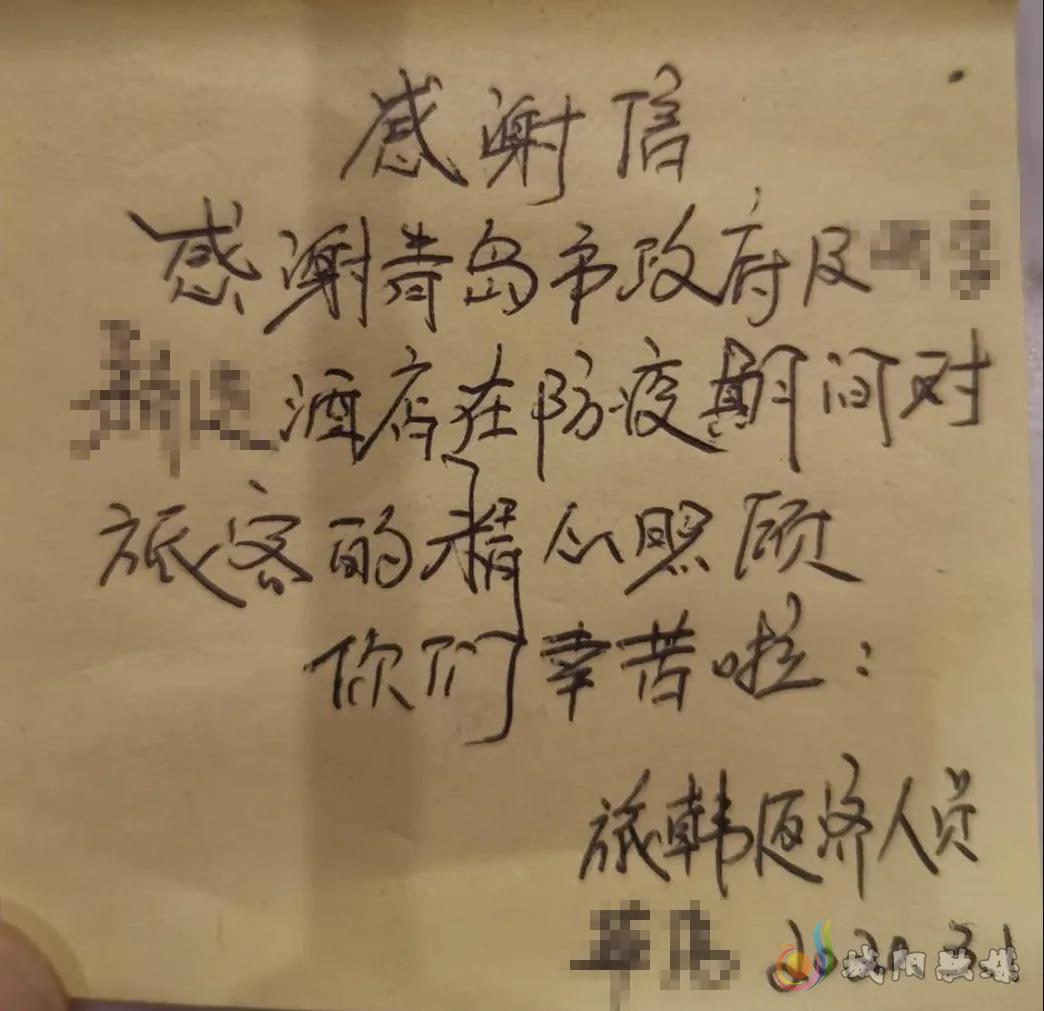 感谢信
感谢青岛市政府及
酒店在防疫期间对
旅客的精心照顾
你们辛苦啦：
旅韩返济人员
2020.3.1
城阳融媒